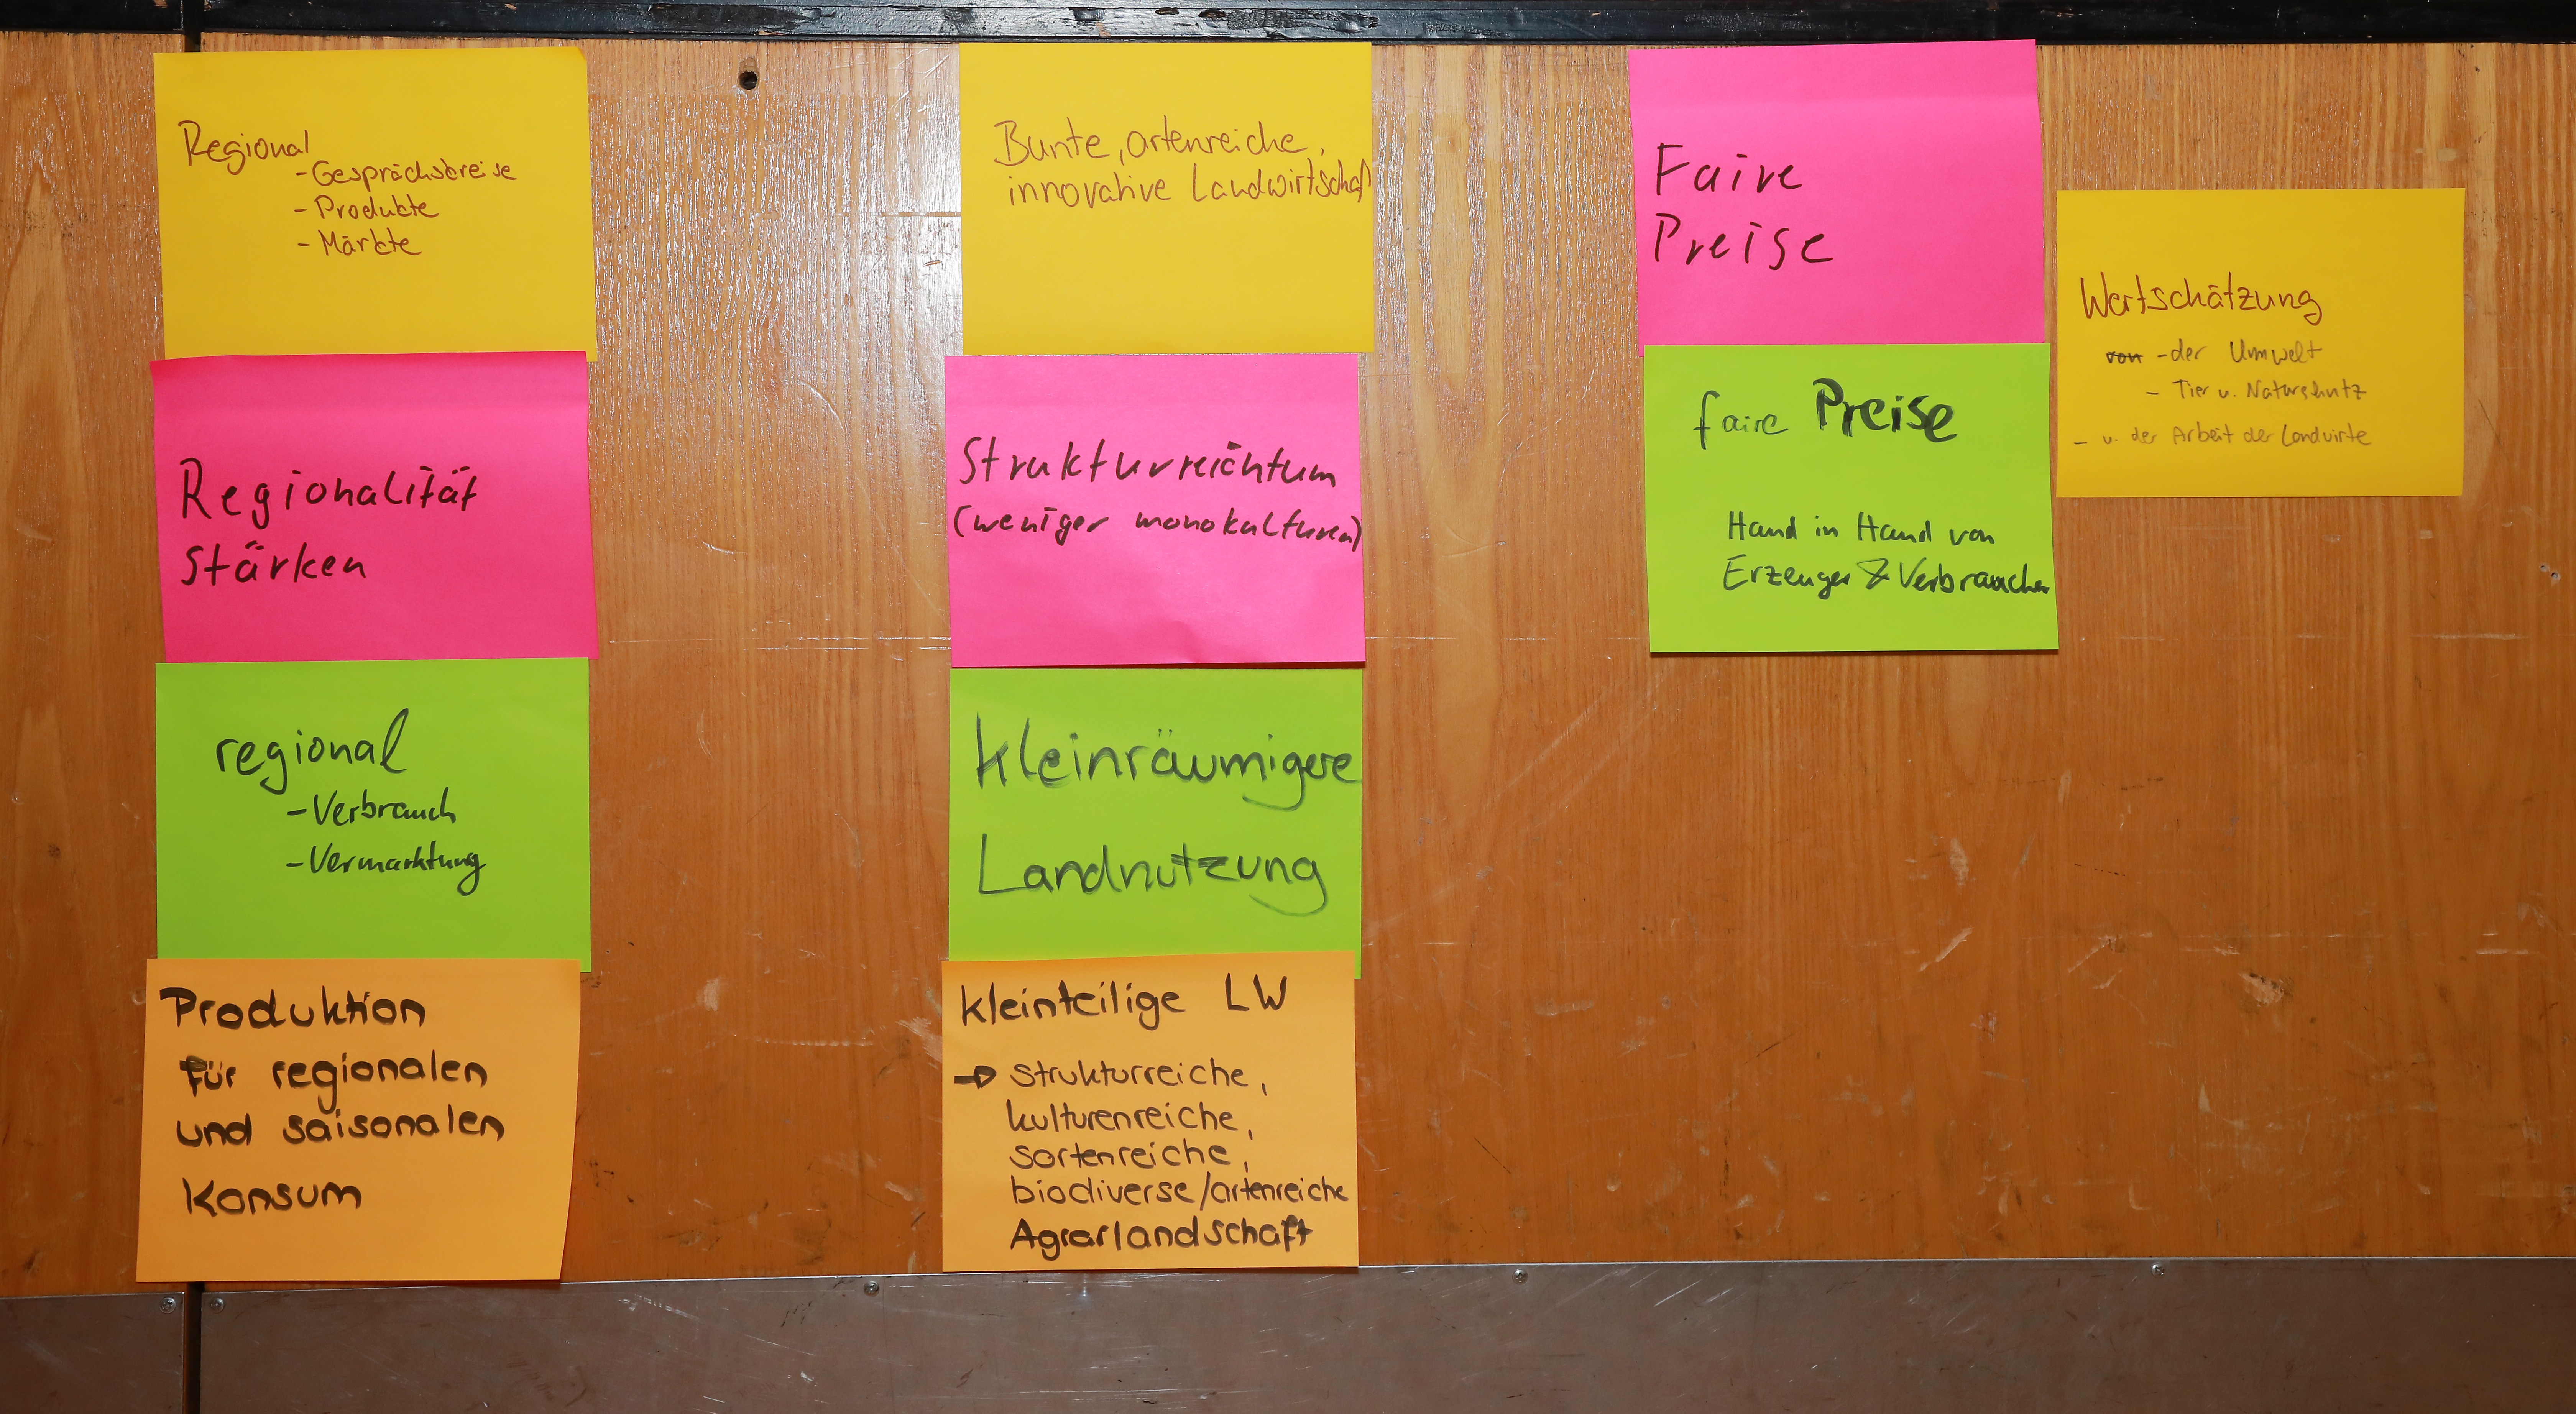 Regional
- Gesprächskreise
- Produkte
- Märkte
Regionalität
Stärken
regional
- Verbrauch
- Vermarktung
Produktion
für regionalen
und saisonalen
Konsum
Bunte, artenreiche,
innovative Landwirtschaft
Strukturreichtum
(weniger monokulturen)
kleinräumigere
Landnutzung
kleinteilige LW
→ strukturreiche,
kulturenreiche,
sortenreiche,
biodiverse/artenreiche
Agrarlandschaft
Faire
Preise
faire Preise
Hand in Hand von
Erzeuger & Verbraucher
Wertschätzung
von - der Umwelt
- Tier u. Naturschutz
- u. der Arbeit der Landwirte